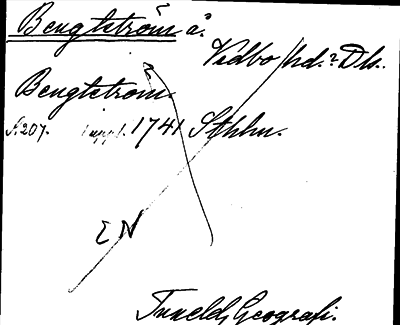 Bengtström å.
Vedbo hd. Dls.
Bengtström.
s. 207. uppl. 1741 Sthlm.
EN
Tunelds Geografi.